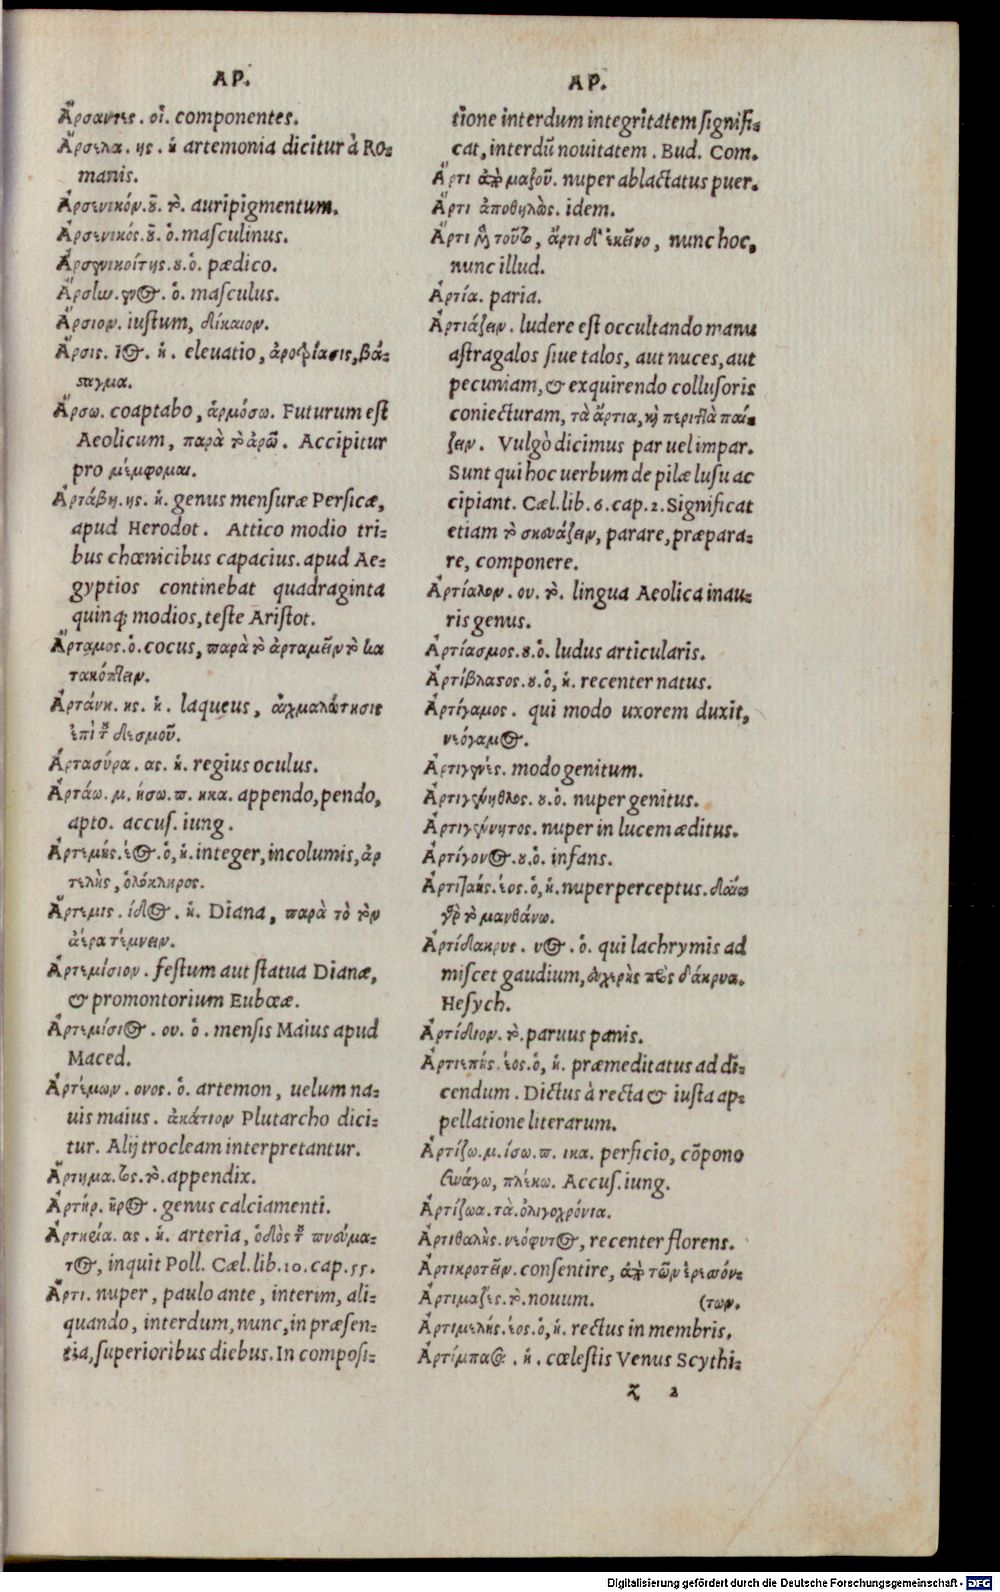 ΑΡ.
Ἄρσαντες. οἱ. componentes.
Ἄρσελα. ης. ἡ artemonia dicitur à Ro-
manis.
Ἀρσενικόν. ȣ͂. τὸ. auripigmentum.
Ἀρσενικός. ȣ͂. ὁ. maſculinus.
Ἀρσενικοίτης. ȣ. ὁ. pædico.
Ἄρσην. ενος. ὁ. maſculus.
Ἄρσιον. iustum, δίκαιον.
Ἄρσις. ιος. ἡ. eleuatio,
σταγμα.
Ἄρσω. coaptabo, ἁρμόσω. Futurum eſt
Aeolicum, παρὰ τὸ ἀρῶ. Accipitur
pro μέμφομαι.
Ἀρτάβη. ης. ἡ. genus menſuræ Perſicæ,
apud Herodot. Attico modio tri-
bus chœnicibus capacius. apud Ae-
gyptios continebat quadraginta
quinq; modios, teſte Ariſtot.
Ἄρταμος. ὁ. cocus, παρὰ τὸ ἀρταμεῖν τὸ κα
τακόπτειν.
Ἀρτάνη. ης. ἡ. laqueus,
ἐπὶ τῆς δεσμοῦ.
Ἀρτασύρα. ας. ἡ. regius oculus.
Ἀρτάω. μ. ήσω. π. ηκα. appendo, pendo,
apto. accuſ. iung.
Ἀρτεμής. έος. ὁ, ἡ. integer, incolumis, ἀρ
τελής, ὁλόκληρος.
Ἄρτεμις. ιδος. ἡ. Diana, παρὰ τὸ τὸν
ἀέρα τέμνειν.
Ἀρτεμίσιον. feſtum aut ſtatua Dianæ,
& promontorium Eubœæ.
Ἀρτεμίσιος. ου. ὁ. menſis Maius apud
Maced.
Ἀρτέμων. ονος. ὁ. artemon, uelum na-
uis maius. ἀκάτιον Plutarcho dici-
tur. Alij trocleam interpretantur.
Ἄρτημα. τος. τὸ. appendix.
Ἀρτήρ. ῆρος. genus calciamenti.
Ἀρτηρία. ας. ἡ. arteria, ὁδὸς τοῦ πνεύμα-
τος, inquit Poll. Cæl. lib. 10. cap. 55.
Ἄρτι. nuper, paulo ante, interim, ali-
quando, interdum, nunc, in præſen-
tia, ſuperioribus diebus. In compoſi-
ΑΡ.
tione interdum integritatem ſignifi-
cat, interdū nouitatem. Bud. Com.
Ἄρτι ἀπὸ μαζοῦ. nuper ablactatus puer.
Ἄρτι ἀποθηλὼς. idem.
Ἄρτι μὲν τοῦτο, ἄρτι δ' ἐκεῖνο, nunc hoc,
nunc illud.
Ἀρτία. paria.
Ἀρτιάζειν. ludere eſt occultando manu
aſtragalos ſiue talos, aut nuces, aut
pecuniam, & exquirendo colluſoris
coniecturam, τὰ ἄρτια, καὶ περιττὰ παί-
ζειν. Vulgò dicimus par uel impar.
Sunt qui hoc uerbum de pilæ luſu ac
cipiant. Cæl. lib. 6. cap. 2. Significat
etiam τὸ σκευάζειν, parare, præpara-
re, componere.
Ἀρτίαλον. ου. τὸ. lingua Aeolica inau-
ris genus.
Ἀρτίασμος. ȣ. ὁ. ludus articularis.
Ἀρτίβλαστος. ȣ. ὁ, ἡ. recenter natus.
Ἀρτίγαμος. qui modo uxorem duxit,
νεόγαμος.
Ἀρτιγενές. modo genitum.
Ἀρτιγένηθλος. ȣ. ὁ. nuper genitus.
Ἀρτιγέννητος. nuper in lucem æditus.
Ἀρτίγονος. ȣ. ὁ. infans.
Ἀρτιδαής. έος. ὁ, ἡ. nuper perceptus. δαίω
γὰρ τὸ μανθάνω.
Ἀρτίδακρυς. υος. ὁ. qui lachrymis ad
miſcet gaudium, εὐχερὴς πρὸς δάκρυα.
Heſych.
Ἀρτίδιον. τὸ. paruus panis.
Ἀρτιεπής. έος. ὁ, ἡ. præmeditatus ad di-
cendum. Dictus à recta & iuſta ap-
pellatione literarum.
Ἀρτίζω. μ. ίσω. π. ικα. perficio, cōpono
συνάγω, πλέκω. Accuſ. iung.
Ἀρτίζωα. τὰ. ὀλιγοχρόνια.
Ἀρτιθαλής. νεόφυτος, recenter florens.
Ἀρτικροτεῖν. conſentire, ἀπὸ τῶν ἐρεσσόν-
Ἀρτιμαζές. τὸ. nouum. (των.
Ἀρτιμελής. έος. ὁ, ἡ. rectus in membris.
Ἀρτίμπασα. ἡ. cœleſtis Venus Scythi-
z 2
Digitalisierung gefördert durch die Deutsche Forschungsgemeinschaft - DFG